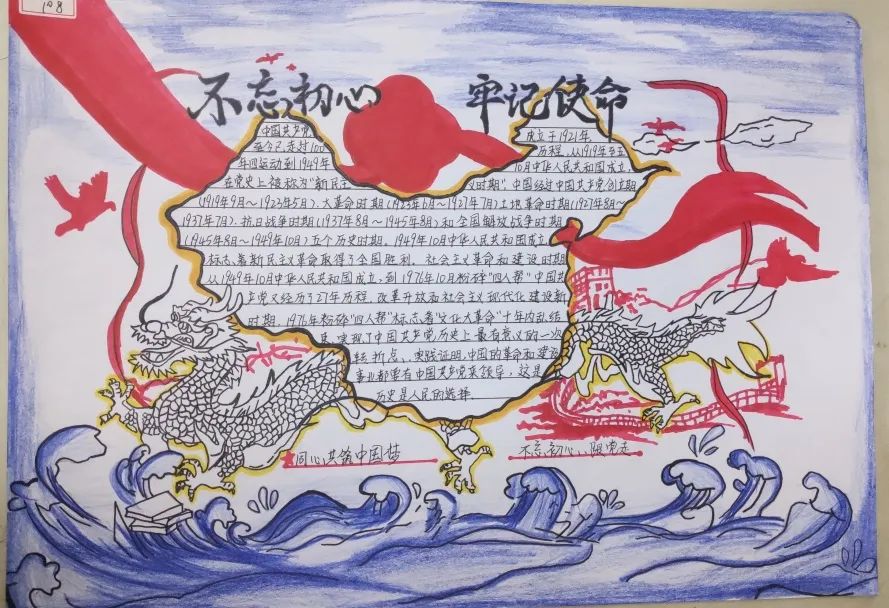 不忘初心 牢记使命
中国共产党 成立于1921年
至今已走过100 历程,从1919年至五
年四运动到1949年 10月中华人民共和国成立,
在党史上被称为"新民主 义时期".中国经过中国共产党创立期
(1919年9月~1923年5月)、大革命时期(1923年6月~1927年7月)土地革命时期(1927年8月~
1937年7月)、抗日战争时期(1937年8月~1945年8月)和全国解放战争时期
(1945年8月~1949年10月)五个历史时期。1949年10月中华人民共和国成立
标志着新民主义革命取得了全国胜利。社会主义革命和建设时期
从1949年10月中华人民共和国成立,到1976年10月粉碎"四人帮"中国共
产党又经历了27年历程,改革开放和社会主义现代化建设新
时期,1976年粉碎"四人帮"标志着"文化大革命"十年内乱结
束,实现了中国共产党历史上最有意义的一次
转折点、实践证明,中国的革命和建设
事业都要有中国共产党来领导,这是
历史是人民的选择.
同心共筑中国梦 不忘初心、跟党走